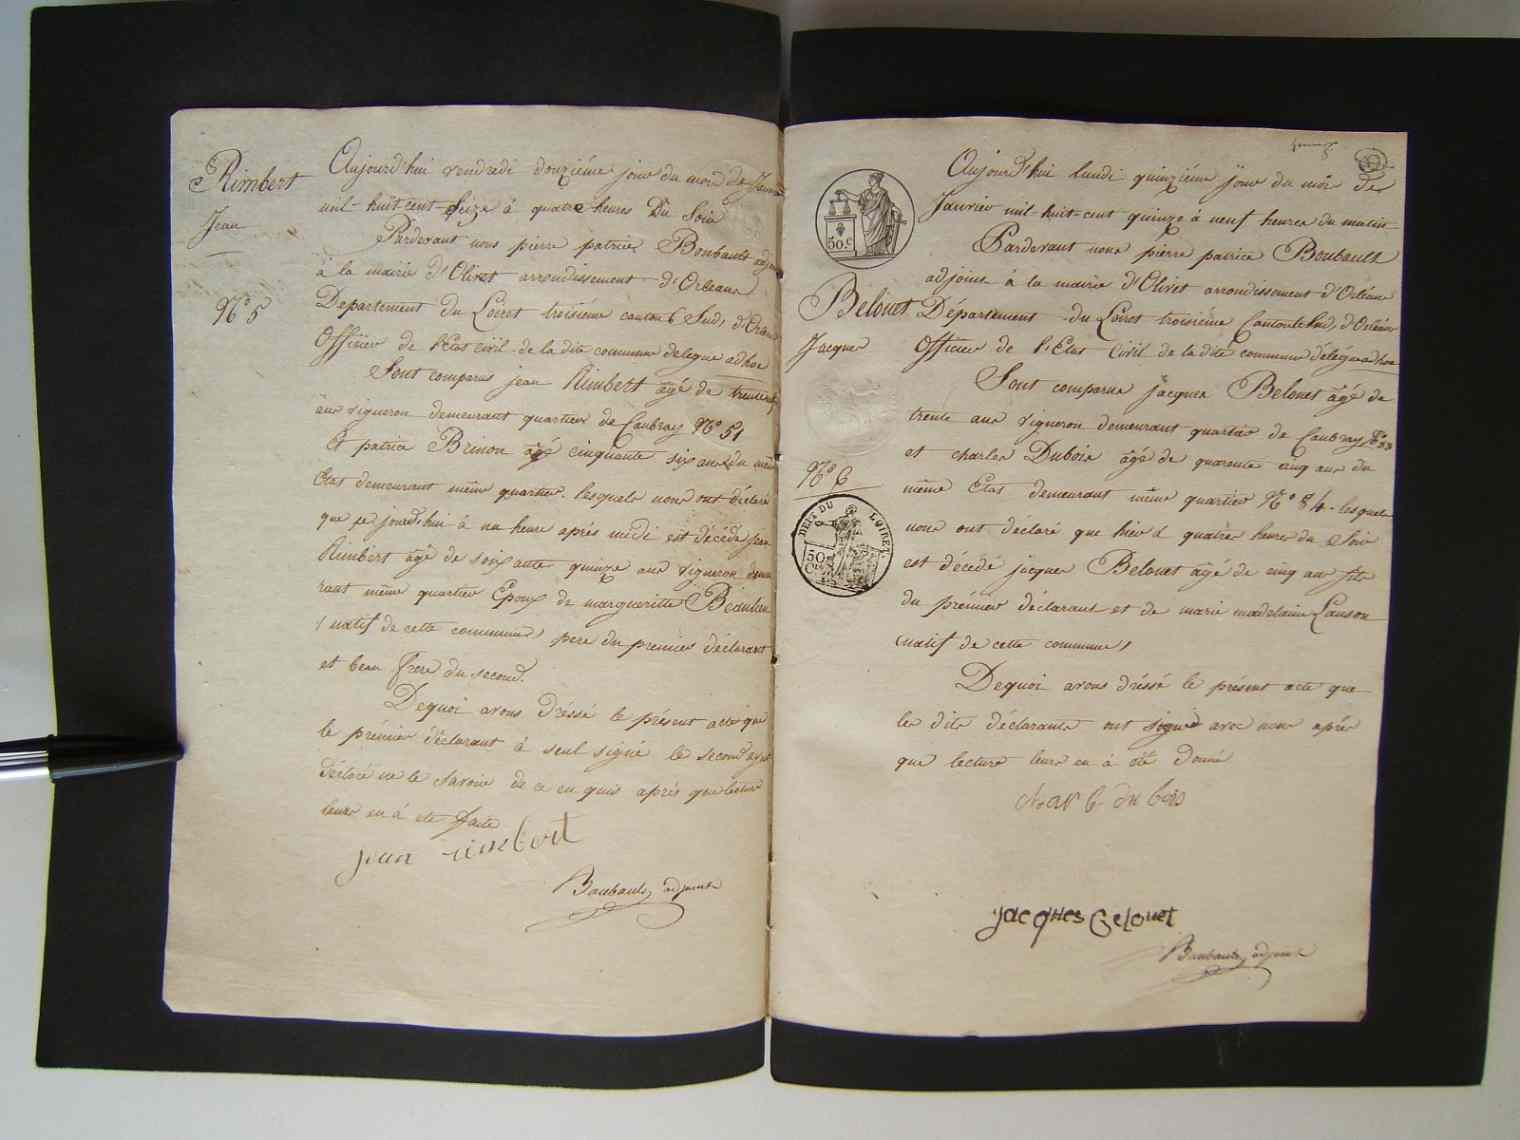 Rimbert
Jean
N.° 5
Aujourd'hui vendredi douziéme jour du mois de Janv
mil-huit-cent-Seize à quatre heures Du Soir
Pardevant nous pierre patrice Boubault adj
à la mairie d'Olivet arrondissement d'Orleans
Departement du Loiret troisiéme canton Sud, d'Orleans
Officier de l'Etat Civil de la dite commune delegué adhoc
Sont comparus jean Rimbert âgé de trente
ans vigneron demeurant quartier de Caubray N.° 51
Et patrice Brinon âgé cinquante six ans du même
Etat demeurant même quartier. lesquels nous ont déclaré
que ce jourd'hui à un heure aprés midi est décédé jean
Rimbert âgé de soixante quinze ans vigneron demeu
rant même quartier Epoux de margueritte Beaulieu
(natif de cette commune) pere du premier déclarant
et beau frere du second.
Dequoi avons dréssé le présent acte que
le prémier déclarant à seul signé le second ayant
déclaré ne le savoir de ce enquis aprés que lecture
leur en à été faite
jean rimbert
Boubault, adjoint
Belouet
Jacques
N.° 6
50.c
DEP.T DU LOIRET
50
Aujourd'hui lundi quinziéme jour du mois de
Janvier mil-huit-cent quinze à neuf heures du matin
Pardevant nous pierre patrice Boubault
adjoint à la mairie d'Olivet arrondissement d'Orléans
Département du Loiret troisiéme Canton Sud, d'Orléans
Officier de l'Etat Civil de la dite commune délégué adhoc
Sont comparus jacques Belouet âgé de
trente ans vigneron demeurant quartier de Caubray
et charles Dubois âgé de quarante cinq ans du
même Etat demeurant même quartier N.° 84. lesquels
nous ont déclaré que hier à quatre heures du Soir
est décédé jacques Belouet âgé de cinq ans fils
du prémier déclarant et de marie madelaine Lanson
(natif de cette commune)
Dequoi avons dréssé le présent acte que
les dits déclarants ont signé avec nous aprés
que lecture leurs en à été donné
charles du bois
jacques Belouet
Boubault, adjoint